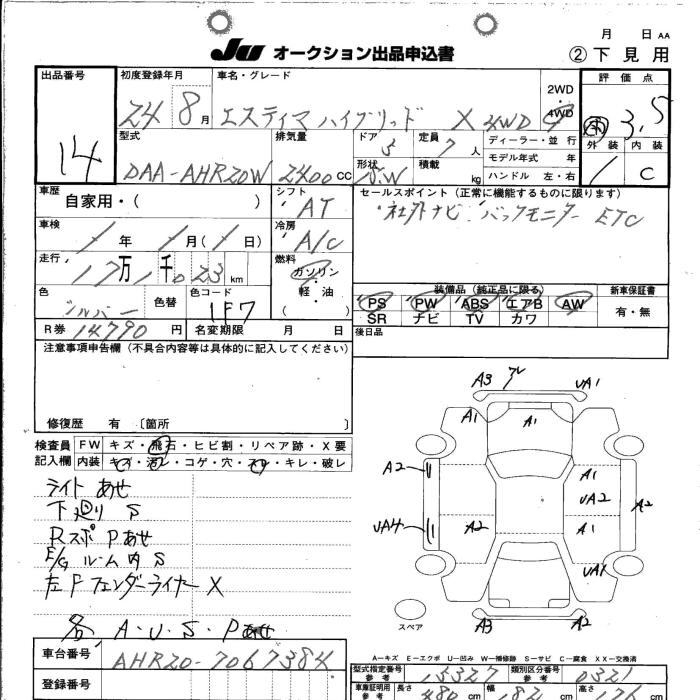 月 日 AA
JU オークション出品申込書 ②下見用
出品番号 14
初度登録年月 24 8月
車名・グレード エスティマ ハイブリッド X 4WD
2WD・4WD
評価点 3.5
外装 内装 C
型式 DAA-AHR20W
排気量 2400 CC
ドア 5
形状 S.W
定員 7人
積載 kg
ディーラー・並行
モデル年式 年
ハンドル 左・右
車歴 自家用・( )
シフト AT
セールスポイント(正常に機能するものに限ります)
・社外ナビ・バックモニター ETC
車検 / 年 / 月(/日)
冷房 A/C
走行 17万1千023 km
燃料 ガソリン・軽・油 ( )
装備品(純正品に限る) 新車保証書
PS PW ABS エアB AW 有・無
SR ナビ TV カワ
色 シルバー 色替 色コード 1F7
R券 14790円 名変期限 月 日
後日品
注意事項申告欄(不具合内容等は具体的に記入してください)
修復歴 有 〔箇所 〕
検査員記入欄
FW キズ・飛石・ヒビ割・リペア跡・X要
内装 キズ・汚レ・コゲ・穴・スレ・キレ・破レ
ライト あせ
下廻り S
Rスポ Pあせ
E/G ルーム内 S
左Fフェンダーライナー X
各 A・U・S・Pあせ
A3 UA1
A1 A1
A2 A1
UA2 A2
UA4 A2 A1
UA1
スペア A3 A2
A-キズ E-エクボ U-凹み W-補修跡 S-サビ C-腐食 XX-交換済
車台番号 AHR20-7067384
型式指定番号 参考 15327
類別区分番号 参考 0321
登録番号
車庫証明用 参考 長さ 480 cm 幅 182 cm 高さ 176 cm